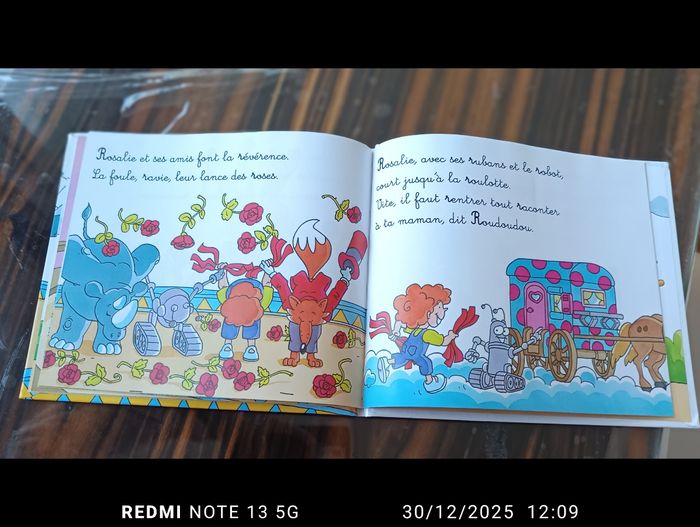 Rosalie et ses amis font la révérence.
La foule, ravie, leur lance des roses.
Rosalie, avec ses rubans et le robot,
court jusqu'à la roulotte.
Vite, il faut rentrer tout raconter
à ta maman, dit Roudoudou.
REDMI NOTE 13 5G
30/12/2025 12:09